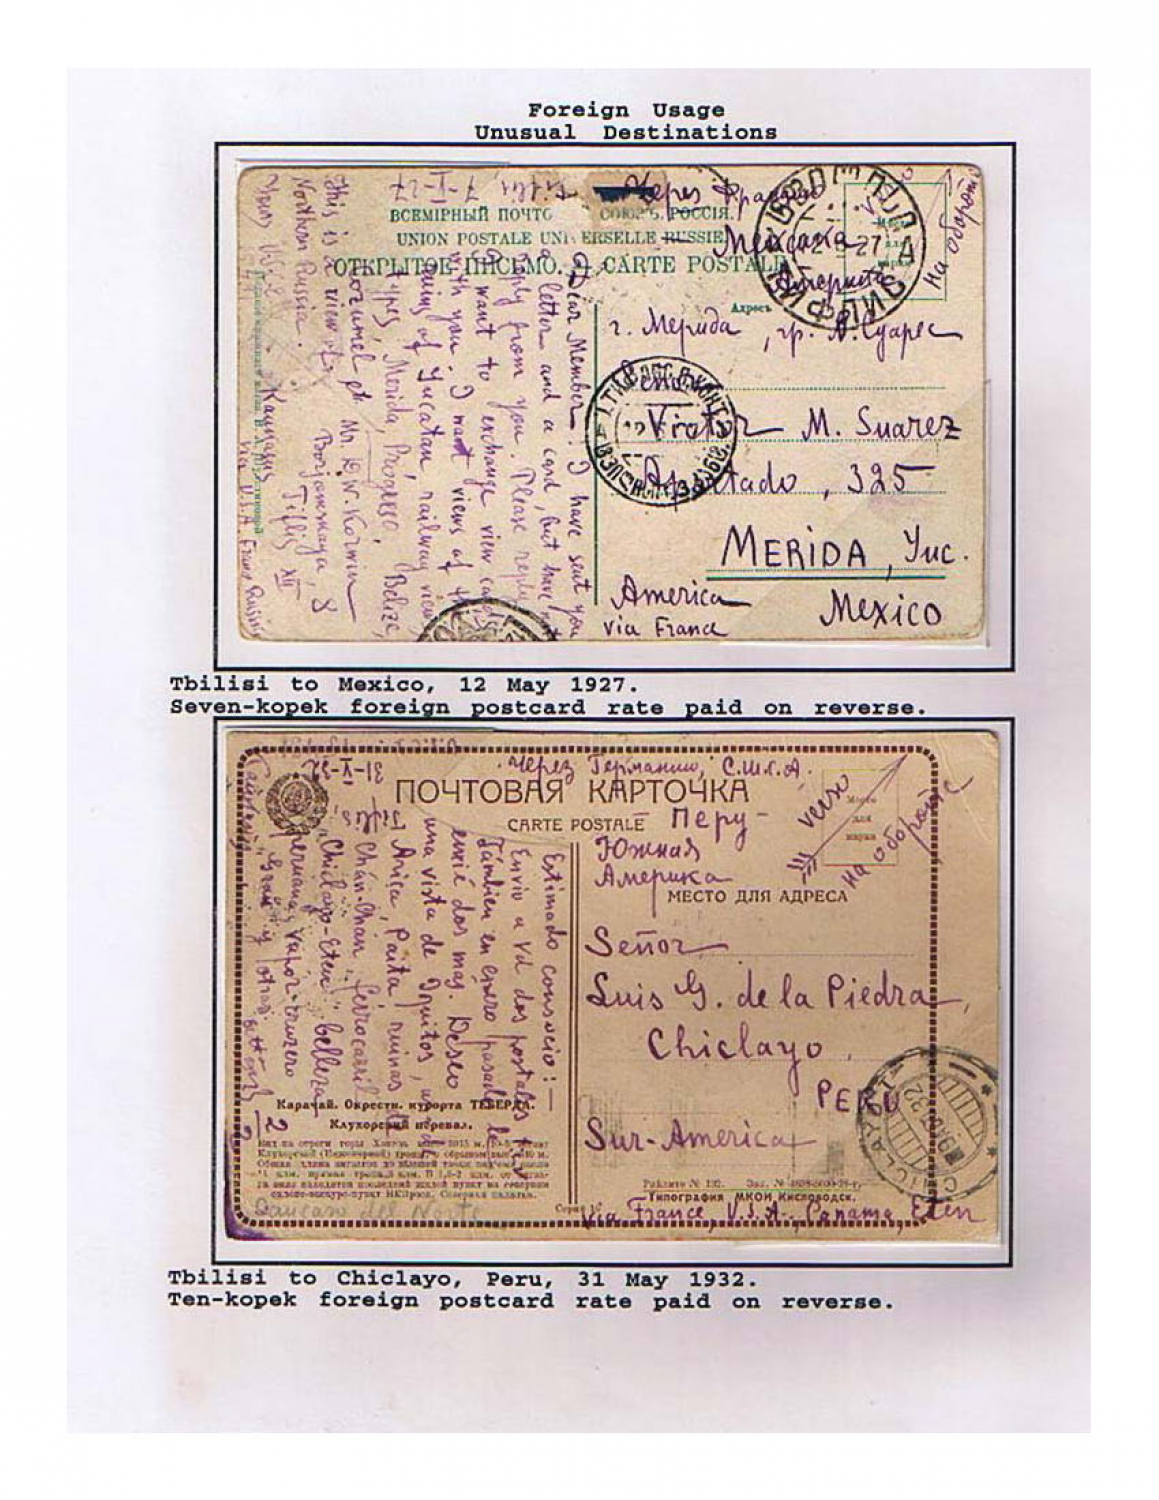 Foreign Usage
Unusual Destinations
Через Францию
ВСЕМІРНЫЙ ПОЧТО СОЮЗЪ. РОССІЯ.
UNION POSTALE UNIVERSELLE RUSSIE
Мексика
ОТКРЫТОЕ ПИСЬМО. CARTE POSTALE
на обороте
Адресъ
г. Мерида, гр. В. Суарес
Señor
Victor M. Suarez
Apartado, 325
MERIDA, Yuc.
America Mexico
via France
Tiflis, 7 V-27
Dear Member! I have sent you
a letter and a card, but have not
reply from you. Please reply
I want to exchange view cards
with you. I want views of the
ruins of Yucatan, railway views
types, Merida, Progreso, Belize,
Cozumel et Mr. W. Korwin
This is a view of Borjomskaya, 8
Northern Russia. Kaukasus Tiflis XII
via U.S.A. France Russie
ТИФЛИС
Tbilisi to Mexico, 12 May 1927.
Seven-kopek foreign postcard rate paid on reverse.
Через Германию, С.Ш.С.А.
ПОЧТОВАЯ КАРТОЧКА
CARTE POSTALE
Перу -
Южная
Америка
Место
для
марки
verso
на обороте
МЕСТО ДЛЯ АДРЕСА
Señor
Luis G. de la Piedra,
Chiclayo,
PERU
Sur-America
CHICLAYO
Tiflis, 31-V-32
Estimado consocio! —
Envio a Vd dos postales
Tambien en enero pasado le
envié dos mas. Deseo
una vista de Iquitos,
Arica, Paita, ruinas de
Chán-Chán, ferrocarril
"Chiclayo-Eten", belleza
peruana, vapor-crucero
"Grau" y otras
Карачай. Окрестн. курорта ТЕБЕРДА.
Клухорский перевал.
Caucaso del Norte
Типография МКОИ Кисловодск.
Via France, U.S.A., Panama, Eten
Tbilisi to Chiclayo, Peru, 31 May 1932.
Ten-kopek foreign postcard rate paid on reverse.